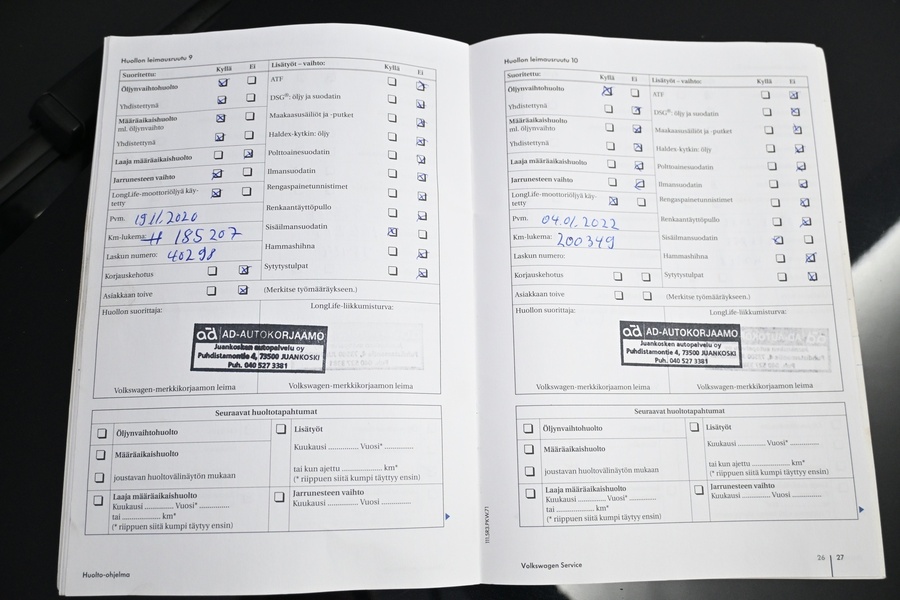 Huollon leimausruutu 9
Suoritettu: Kyllä Ei
Öljynvaihtohuolto
Yhdistettynä
Määräaikaishuolto
ml. öljynvaihto
Yhdistettynä
Laaja määräaikaishuolto
Jarrunesteen vaihto
LongLife-moottoriöljyä käy-
tetty
Pvm. 19.11.2020
Km-lukema: 185 207
Laskun numero: 40298
Korjauskehotus
Asiakkaan toive
Lisätyöt – vaihto: Kyllä Ei
ATF
DSG®: öljy ja suodatin
Maakaasusäiliöt ja -putket
Haldex-kytkin: öljy
Polttoainesuodatin
Ilmansuodatin
Rengaspainetunnistimet
Renkaantäyttöpullo
Sisäilmansuodatin
Hammashihna
Sytytystulpat
(Merkitse työmääräykseen.)
Huollon suorittaja:
LongLife-liikkumisturva:
ad AD-AUTOKORJAAMO
Juankosken autopalvelu oy
Puhdistamontie 4, 73500 JUANKOSKI
Puh. 040 527 3381
Volkswagen-merkkikorjaamon leima
Volkswagen-merkkikorjaamon leima
Seuraavat huoltotapahtumat
Öljynvaihtohuolto
Määräaikaishuolto
joustavan huoltovälinäytön mukaan
Laaja määräaikaishuolto
Kuukausi ............ Vuosi* ............
tai ..................... km*
(* riippuen siitä kumpi täytyy ensin)
Lisätyöt
Kuukausi ............ Vuosi* ............
tai kun ajettu ................ km*
(* riippuen siitä kumpi täyttyy ensin)
Jarrunesteen vaihto
Kuukausi ............ Vuosi ............
Huolto-ohjelma
Huollon leimausruutu 10
Suoritettu: Kyllä Ei
Öljynvaihtohuolto
Yhdistettynä
Määräaikaishuolto
ml. öljynvaihto
Yhdistettynä
Laaja määräaikaishuolto
Jarrunesteen vaihto
LongLife-moottoriöljyä käy-
tetty
Pvm. 04.01.2022
Km-lukema: 200349
Laskun numero:
Korjauskehotus
Asiakkaan toive
Lisätyöt – vaihto: Kyllä Ei
ATF
DSG®: öljy ja suodatin
Maakaasusäiliöt ja -putket
Haldex-kytkin: öljy
Polttoainesuodatin
Ilmansuodatin
Rengaspainetunnistimet
Renkaantäyttöpullo
Sisäilmansuodatin
Hammashihna
Sytytystulpat
(Merkitse työmääräykseen.)
Huollon suorittaja:
LongLife-liikkumisturva:
ad AD-AUTOKORJAAMO
Juankosken autopalvelu oy
Puhdistamontie 4, 73500 JUANKOSKI
Puh. 040 527 3381
Volkswagen-merkkikorjaamon leima
Volkswagen-merkkikorjaamon leima
Seuraavat huoltotapahtumat
Öljynvaihtohuolto
Määräaikaishuolto
joustavan huoltovälinäytön mukaan
Laaja määräaikaishuolto
Kuukausi ............ Vuosi* ............
tai ..................... km*
(* riippuen siitä kumpi täytyy ensin)
Lisätyöt
Kuukausi ............ Vuosi* ............
tai kun ajettu ................ km*
(* riippuen siitä kumpi täyttyy ensin)
Jarrunesteen vaihto
Kuukausi ............ Vuosi ............
111.5R3.PKW.71
Volkswagen Service
26 27